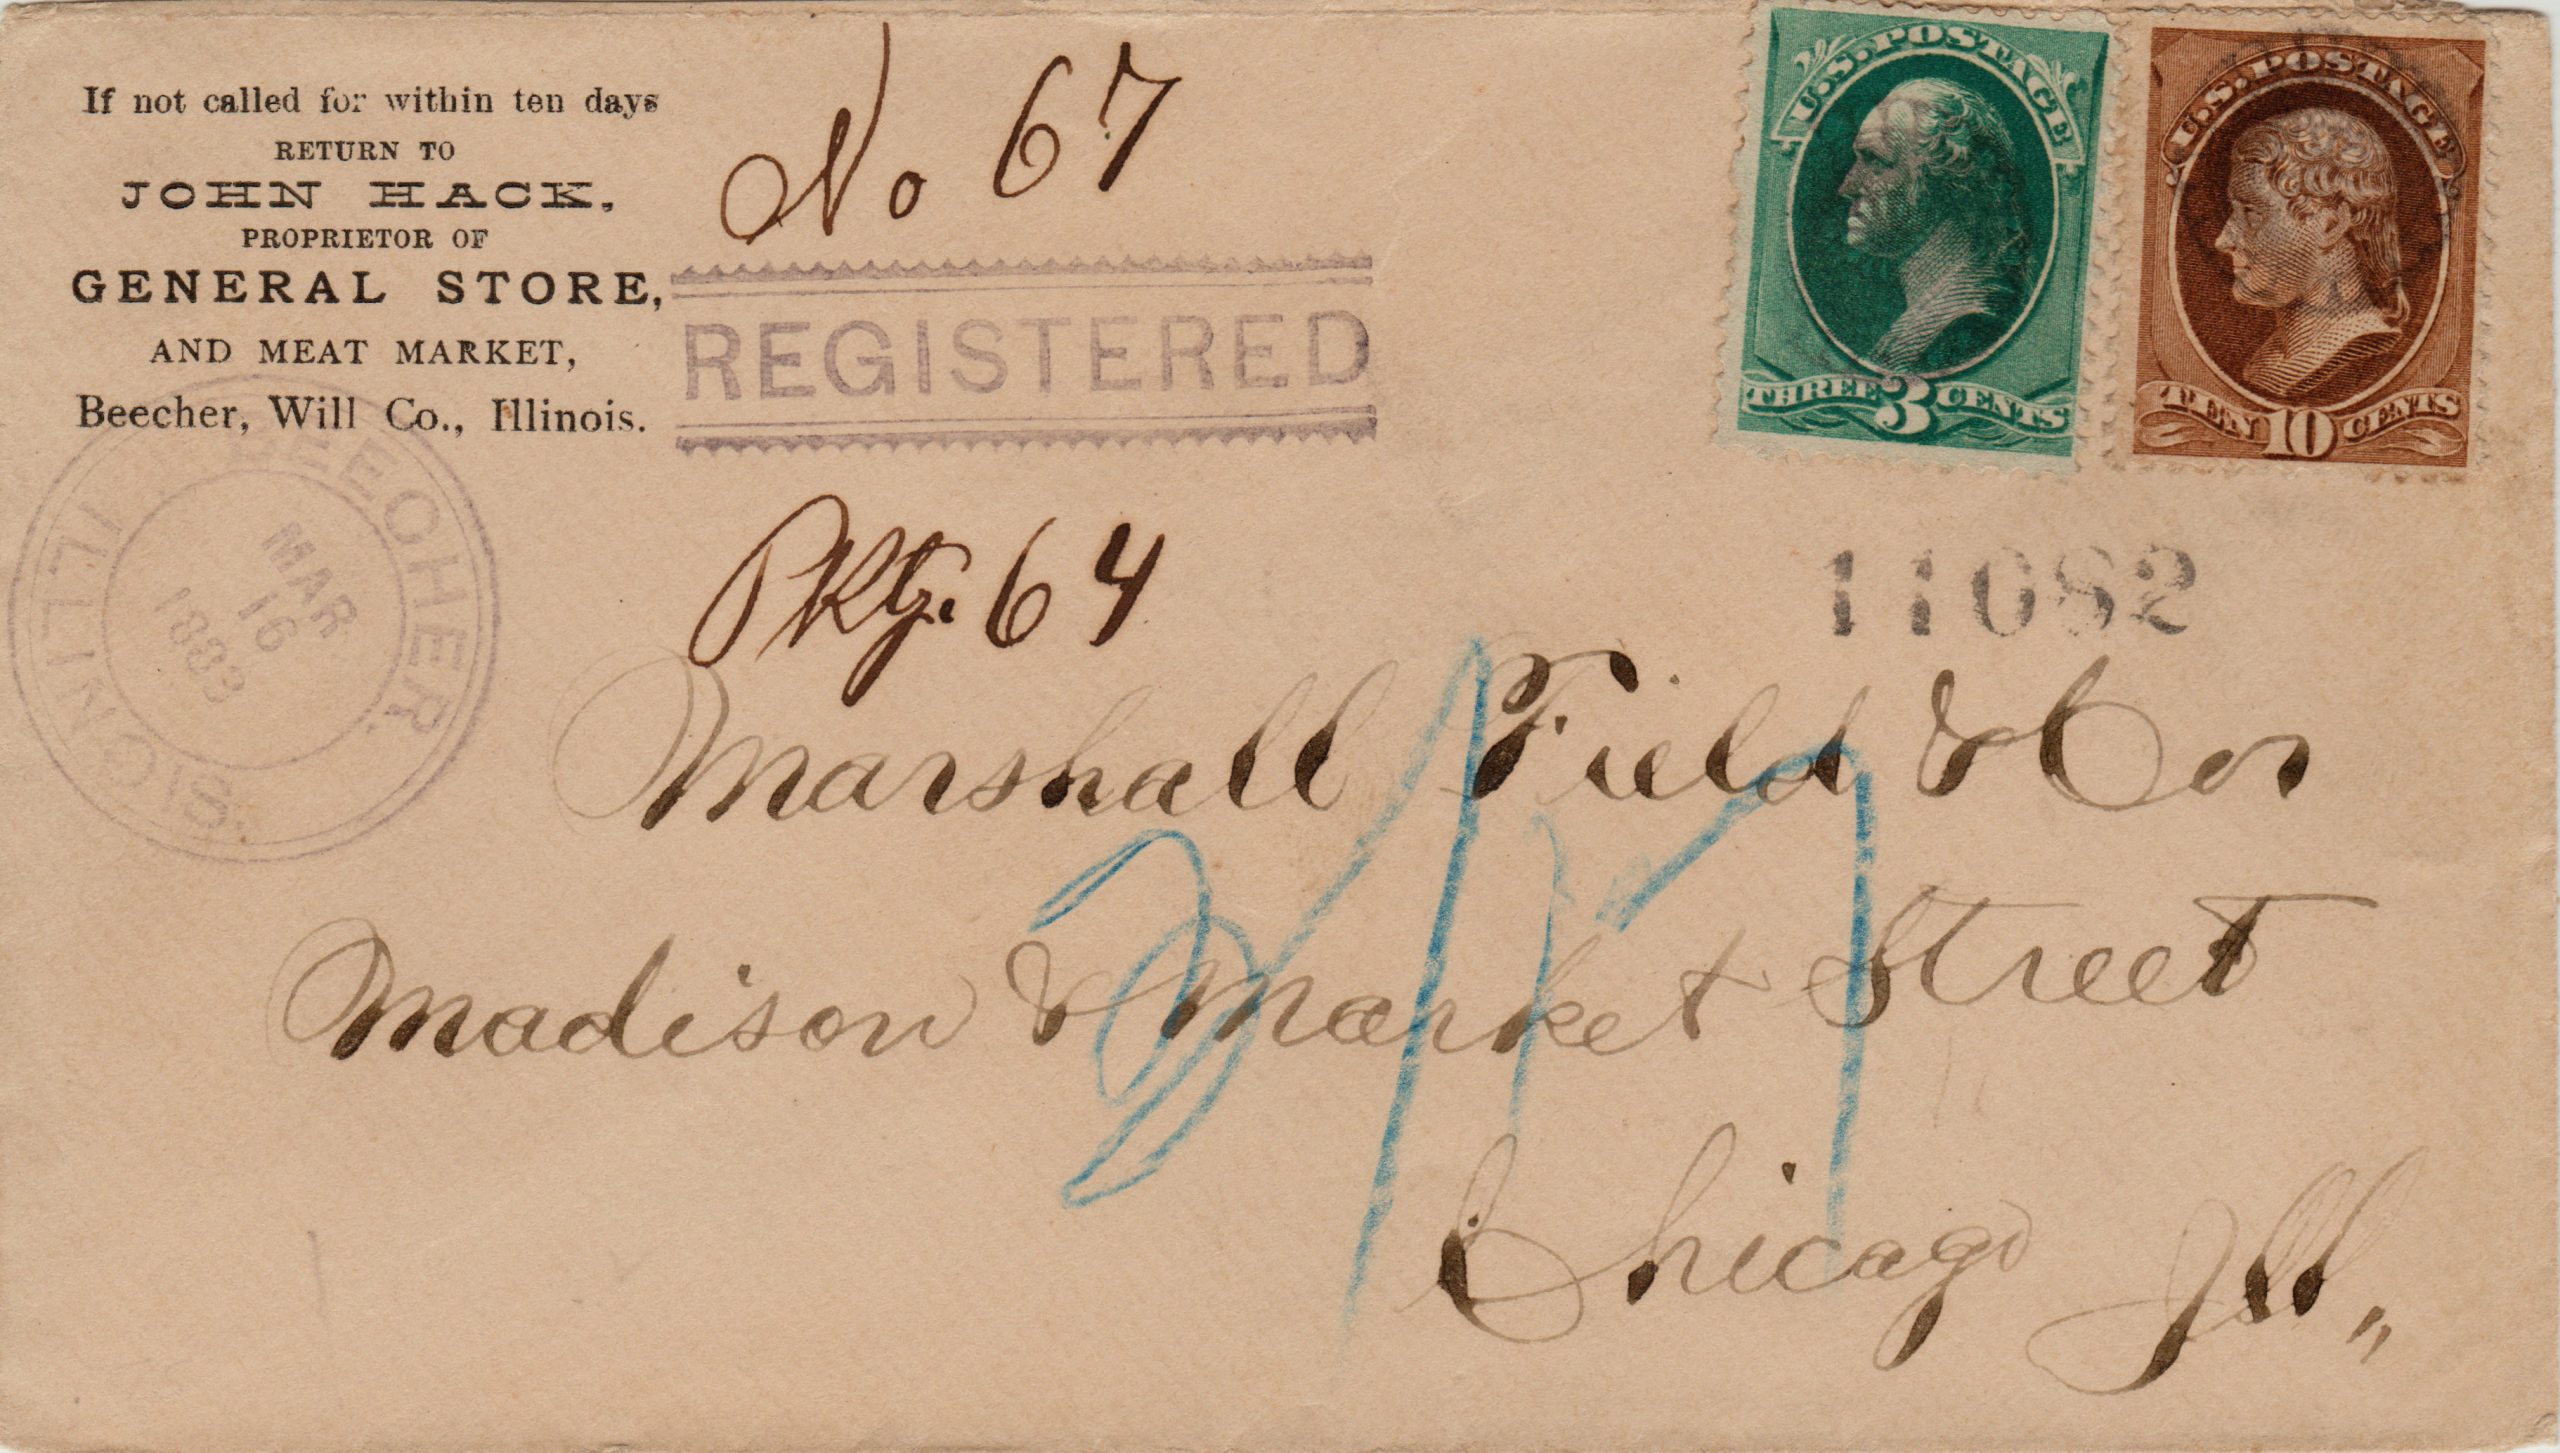 If not called for within ten days
RETURN TO
JOHN HACK,
PROPRIETOR OF
GENERAL STORE,
AND MEAT MARKET,
Beecher, Will Co., Illinois.
No 67
REGISTERED
Pkg. 64
U.S. POSTAGE
THREE 3 CENTS
U.S. POSTAGE
TEN 10 CENTS
11082
BEECHER
ILLINOIS
MAR
16
1883
Marshall Field & Co
Madison & Market Street
Chicago Ill,,